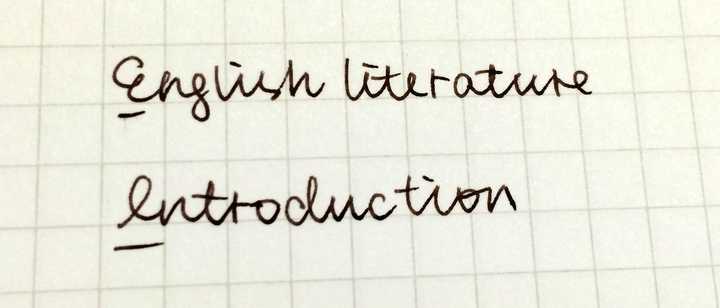 English literature
Introduction